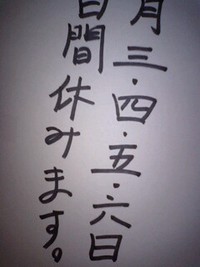 月三・四・五・六日
日間休みます。